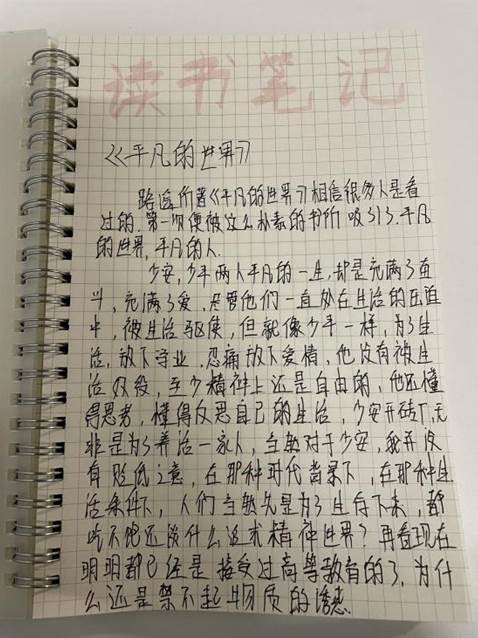 读书笔记
《平凡的世界》
路遥所著《平凡的世界》相信很多人是看
过的.第一次便被这么朴素的书所吸引了.平凡
的世界,平凡的人.
少安,少平两人平凡的一生,却是充满了奋
斗,充满了爱,尽管他们一直处在生活的压迫
中,被生活驱使,但就像少平一样,为了生
活,放下学业,忍痛放下爱情,他没有被生
活奴役,至少精神上还是自由的,他还懂
得思考,懂得反思自己的生活,少安开砖厂,无
非是为了养活一家人,当然对于少安,我并没
有贬低之意,在那种时代背景下,在那种生
活条件下,人们当然先是为了生存下来,都
吃不饱还谈什么追求精神世界?再看现在
明明都已经是接受过高等教育的了,为什
么还是禁不起物质的诱惑.